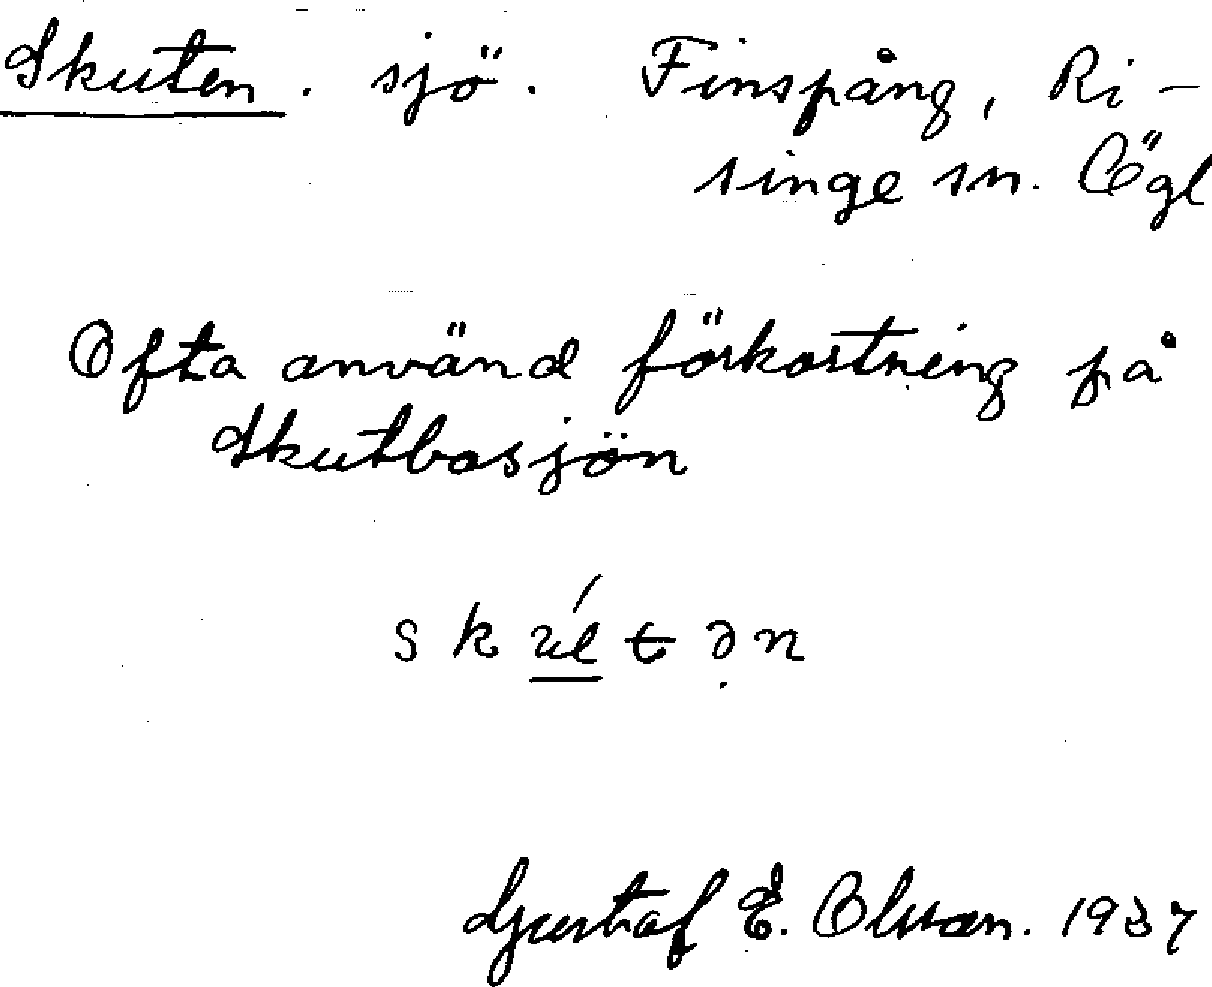 Skuten. sjö. Finspång, Ri-
singe sn. Ögl
Ofta använd förkortning på
Skutbosjön
Gustaf E. Olsson. 1937